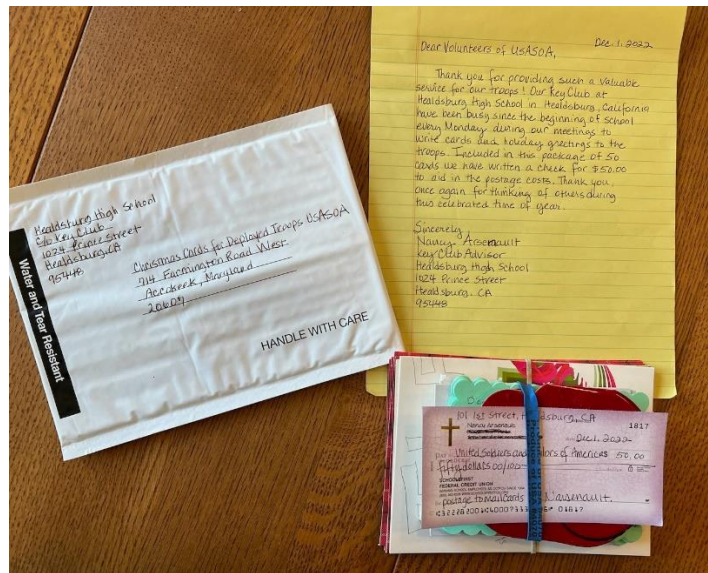 Healdsburg High School
c/o Key Club
1024 Prince Street
Healdsburg, CA
95448
Christmas Cards for Deployed Troops USASOA
714 Farmington Road West
Accokeek, Maryland
20607
Water and Tear Resistant
HANDLE WITH CARE
Dec. 1, 2022
Dear Volunteers of USASOA,
Thank you for providing such a valuable
service for our troops! Our Key Club at
Healdsburg High School in Healdsburg, California
have been busy since the beginning of school
every Monday during our meetings to
write cards and holiday greetings to the
troops. Included in this package of 50
cards we have written a check for $50.00
to aid in the postage costs. Thank you
once again for thinking of others during
this celebrated time of year.
Sincerely
Nancy Arsenault
Key Club Advisor
Healdsburg High School
1024 Prince Street
Healdsburg, CA
95448
101 1st Street, CA
Nancy Arsenault
1817
Dec. 1, 2022
United Soldiers and of America $ 50.00
fifty dollars 00/100
FEDERAL CREDIT UNION
postage to mail cards N arsenault